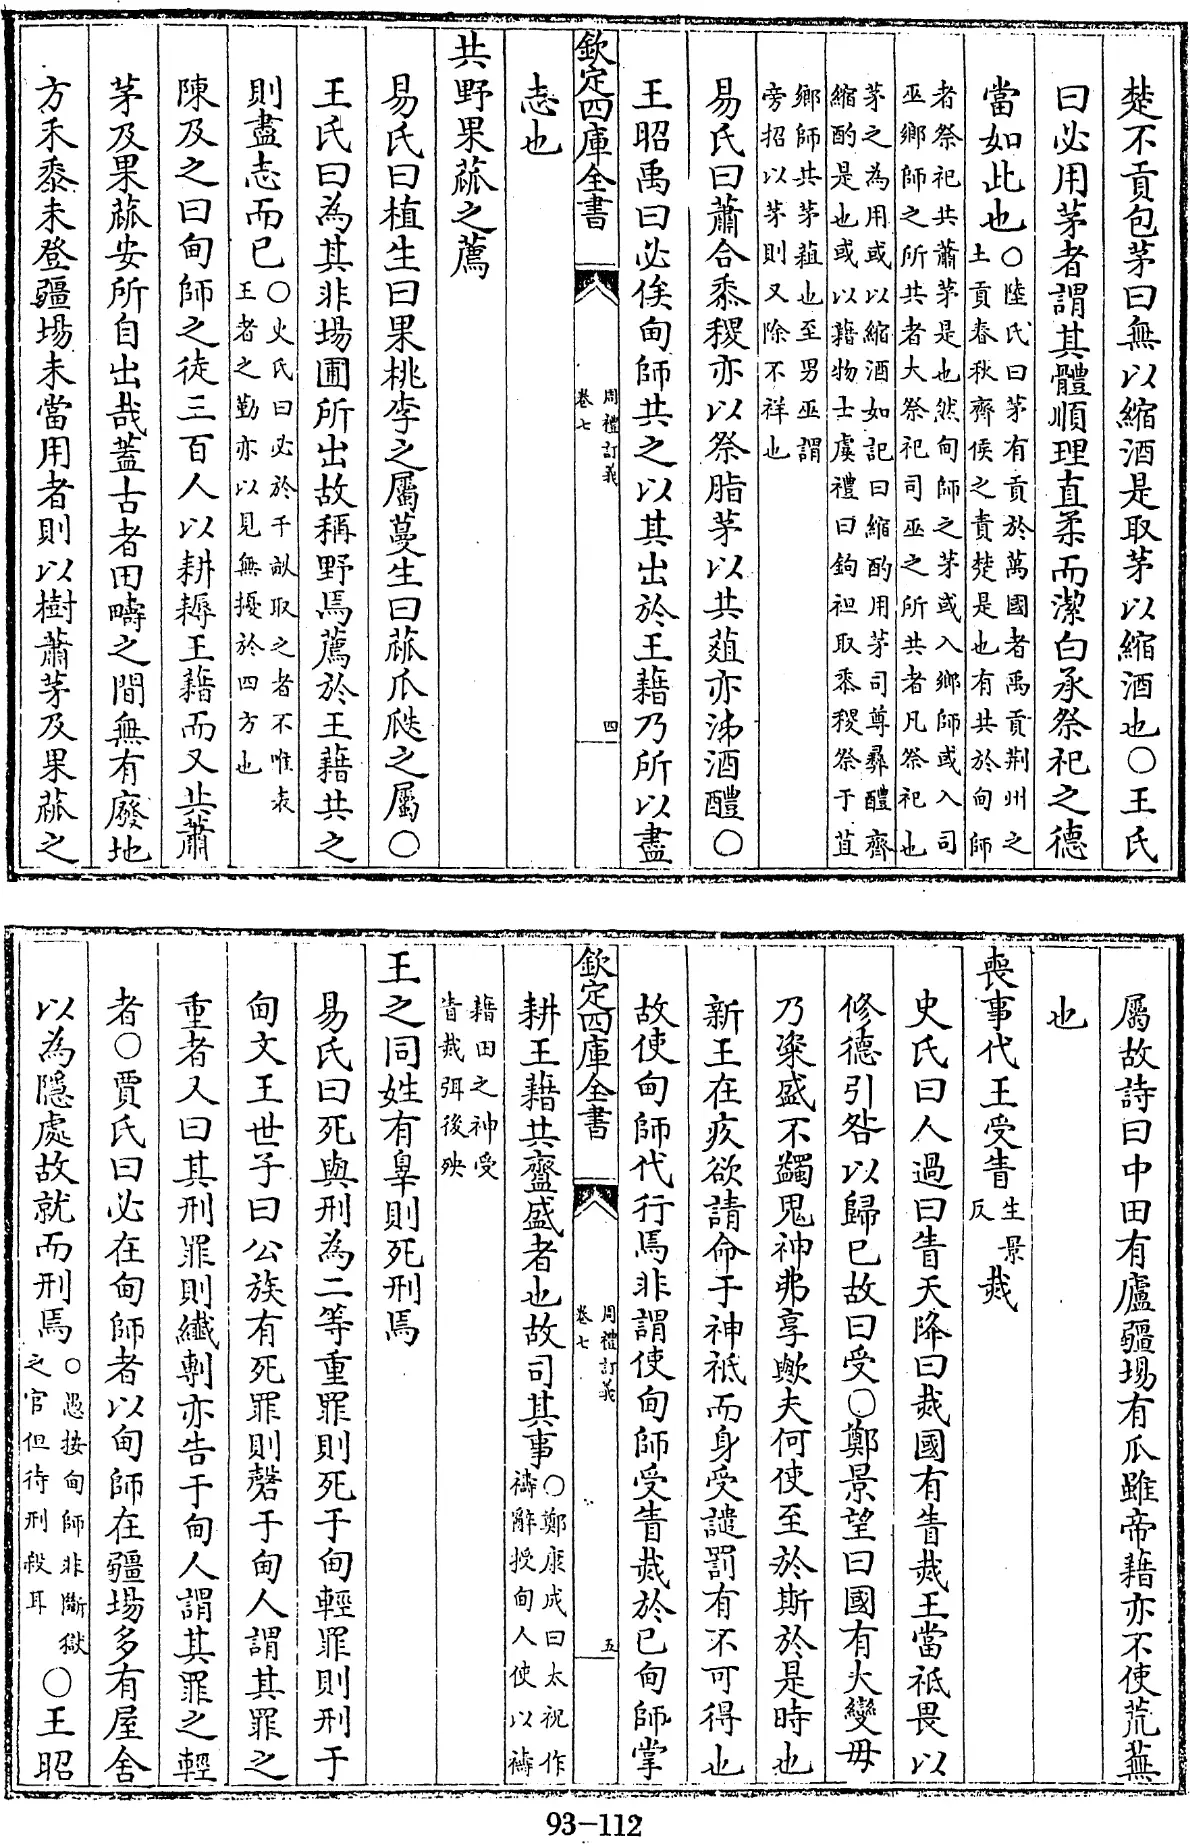 楚不貢包茅曰無以縮酒是取茅以縮酒也○王氏
曰必用茅者謂其體順理直柔而潔白承祭祀之德
當如此也○陸氏曰茅有貢於萬國者禹貢荆州之
土貢春秋齊侯之責楚是也有共於甸師
者祭祀共蕭茅是也然甸師之茅或入鄉師或入司
巫鄉師之所共者大祭祀司巫之所共者凡祭祀也
茅之為用或以縮酒如記曰縮酌用茅司尊彞醴齊
縮酌是也或以藉物士虞禮曰鉤袒取黍稷祭于苴
鄉師共茅蒩也至男巫謂
旁招以茅則又除不祥也
易氏曰蕭合黍稷亦以祭脂茅以共蒩亦泲酒醴○
王昭禹曰必俟甸師共之以其出於王藉乃所以盡
欽定四庫全書
周禮訂義
卷七
四
志也
共野果蓏之薦
易氏曰植生曰果桃李之屬蔓生曰蓏瓜瓞之屬○
王氏曰為其非場圃所出故稱野焉薦於王藉共之
則盡志而已○史氏曰必於千畝取之者不唯表
王者之勤亦以見無擾於四方也
陳及之曰甸師之徒三百人以耕耨王藉而又共蕭
茅及果蓏安所自出哉蓋古者田疇之間無有廢地
方禾黍未登疆場未當用者則以樹蕭茅及果蓏之
屬故詩曰中田有廬疆場有瓜雖帝藉亦不使荒蕪
也
喪事代王受眚生景
反烖
史氏曰人過曰眚天降曰烖國有眚烖王當祗畏以
修德引咎以歸已故曰受○鄭景望曰國有大變毋
乃粢盛不蠲鬼神弗享歟夫何使至於斯於是時也
新王在疚欲請命于神祗而身受譴罰有不可得也
故使甸師代行焉非謂使甸師受眚烖於已甸師掌
欽定四庫全書
周禮訂義
卷七
五
耕王藉共齍盛者也故司其事○鄭康成曰太祝作
禱辭授甸人使以禱
藉田之神受
眚烖弭後殃
王之同姓有辠則死刑焉
易氏曰死與刑為二等重罪則死于甸輕罪則刑于
甸文王世子曰公族有死罪則磬于甸人謂其罪之
重者又曰其刑罪則纖剸亦告于甸人謂其罪之輕
者○賈氏曰必在甸師者以甸師在疆場多有屋舍
以為隱處故就而刑焉○愚按甸師非斷獄
之官但待刑殺耳○王昭
93-112